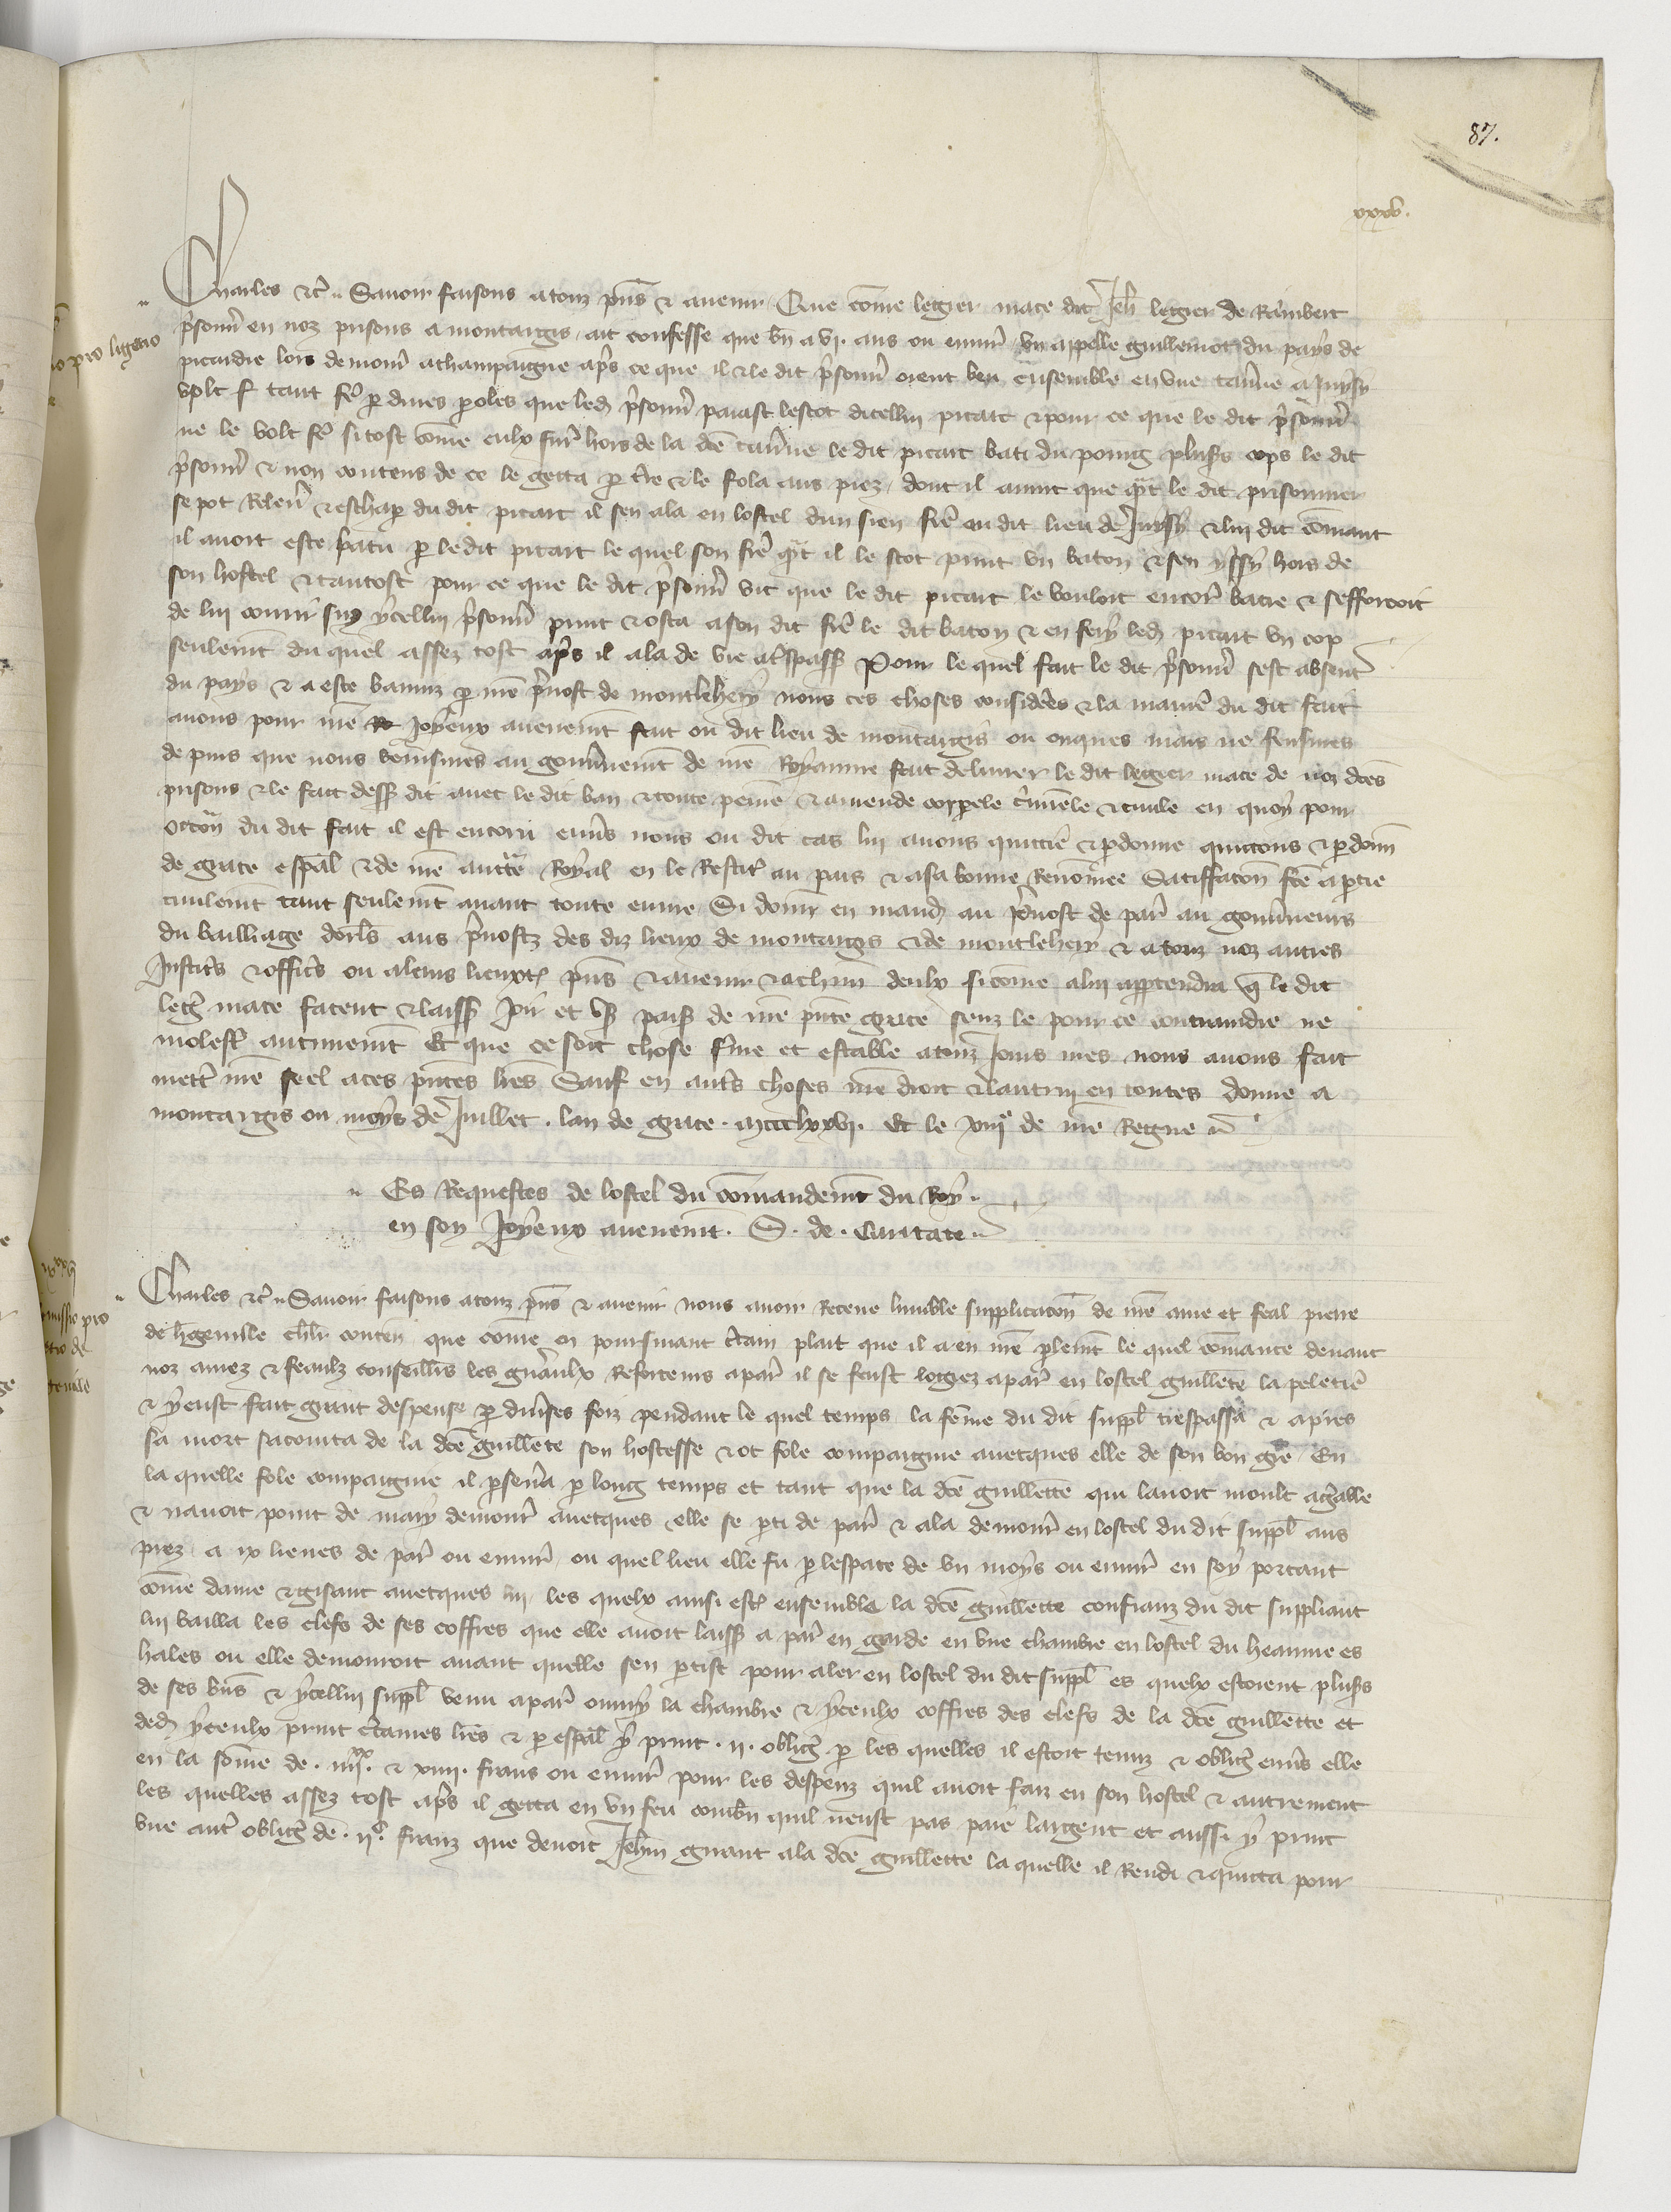 87.
xxxv.
Charles etc̃ Sauoir faisons a touz p̃ns & auenir Que cõme legier mace dit Jeh̃ legier de Rambert
p̃sonñ en noz prisons a montargis ait confesse que bñ a vj. ans ou enuir̃ vn appelle guillemot du pays de
picardie lors demour̃ a champaigne ap̃s ce que il & le dit p̃sonñ orent beu ensemble en vne tau̾ne a Juuisy
volt tant fe͛ p diuses poles que led p̃sonñ paiast lescot dicellui picart & pour ce que le dit p̃sonñ
ne le volt fe͛ si tost cõme eulx fur̃ hors de la dc̃e tau̾ne le dit picart bati du poing plus̃s cops le dit
p̃sonñ & non contens de ce le getta p tr̃e & le fola aus piez dont il auint que q̃t le dit prisonnier
se pot Releu̾ & eschap du dit picart il sen ala en lostel dun sien fre͛ ou dit lieu de Juuisy & lui dit cõmant
il auoit este batu p le dit picart le quel son fre͛ q̃t il le scot print vn baton & sen yssy hors de
son hostel & tantost pour ce que le dit p̃sonñ vit que le dit picart le vouloit encor̃ batre & sefforcoit
de lui courir sus ycellui p̃sonñ print & osta a son dit fre͛ le dit baton & en fery led picart vn cop
seulem̃t du quel assez tost ap̃s il ala de vie a tr̃spass Pour le quel fait le dit p̃sonñ sest absent
du pays & a este banniz p nr̃e p̃uost de montlehery nous ces choses consider̃es & la manier̃e du dit fait
auons pour nr̃e joyeux auenem̃t fait ou dit lieu de montargis ou onques mais ne feusmes
de puis que nous venismes au gou̾nem̃t de nr̃e Royaume fait deliurer le dit legier mace de noz dc̃es
prisons & le fait dess dit auec le dit ban & toute peine & amende corporele c̃minele & ciuile en quoy pour
occõn du dit fait il est encoru enu̾s nous ou dit cas lui auons quictie & pdonne quictons & pdonñ
de grace esp̃al & de nr̃e auct̃e Royal en le Restit͛ au pais & a sa bonne Renõmee Satiffacõn fc̃e a ptie
ciuilem̃t tant seulem̃t auant toute euure Si donñ en mand au p̃uost de par̃ au gou̾neur
du bailliage dorl̃s aus p̃uostz des diz lieux de montargis & de montlehery & a touz noz autres
Justic̃s & offic̃s ou a leurs lieuxt͛ p̃ns & auenir & a chũn deulx si cõme a lui apptendra q̃ le dit
leg̃ mace facent & laiss joir et vs̃ paisˀ de nr̃e p̃nte grace senz le pour ce contraindre ne
molest͛ autrement Et que ce soit chose f̃me et estable a touz Jours mes nous auons fait
mett͛ nr̃e seel a ces p̃ntes lr̃es Sauf en aut̃s choses nr̃e droit & lautrui en toutes donne a
montargis ou moys de Juillet . lan de grace . mccclxxvj. Et le xiijᵉ de nr̃e Regne
Es Requestes de lostel du cõmandem̃t du Roy
en son Joyeux auenem̃t . S . de . Caritate
Charles etc̃ Sauoir faisons a touz p̃ns & auenir nous auoir Receue lumble supplicacõn de nr̃e ame et feal pierre
de h̃geuille ch̃lr conteñ que cõme en poursiuant c̃tain plait que il a en nr̃e plem̃t le quel cõmance deuant
noz amez & feaulx conseill̃rs les gñaulx Reformateurs a par̃ il se feust logiez a par̃ en lostel guillem̃te la peletier̃e
& y eust fait grant despense p diu̾ses foiz pendant le quel temps la fẽme du dit suppl̃ trespassa & apres
sa mort sacointa de la dc̃e guillem̃te son hostesse & ot fole compaignie auecques elle de son bon gre En
la quelle fole compaignie il pseu̾a p long temps et tant que la dc̃e guillem̃te qui lauoit moult agr̃able
& nauoit point de mary demour̃ auecques elle se pti de par̃ & ala demour̃ en lostel du dit suppl̃ aus
piez a ix lieues de par̃ ou enuir̃ ou quel lieu elle fu p lespace de vn moys ou enuir̃ en soy portant
cõme dame & gisant auecques lui les quelx ainsi est͛ ensemble la dc̃e guillemete confianz du dit suppliant
lui bailla les clefs de ses coffres que elle auoit laiss a par̃ en garde en vne chambre en lostel du heaume es
hales ou elle demouroit auant quelle sen ptist pour aler en lostel du dit suppl̃ es quelx estoient plus̃s
de ses biẽs & ycellui suppl̃ venu a par̃ ouury la chambre & yceulx coffres des clefs de la dc̃e guillemete et
ded yceulx print c̃taines lr̃es & p esp̃al y print . ij. oblig̃ p les quelles il estoit tenuz & oblig̃ enu̾s elle
en la sõme de . iiijˣˣ. & xiiij. frans ou enuir̃ pour les despenz quil auoit faiz en son hostel & autrement
les quelles assez tost ap̃s il getta en vn feu combñ quil neust pas paie largent et aussi y print
vne aut͛ oblig̃ de . ijᶜ. franz que deuoit Jeh̃n a la dc̃e guillemete la quelle il Rendi & quicta pour